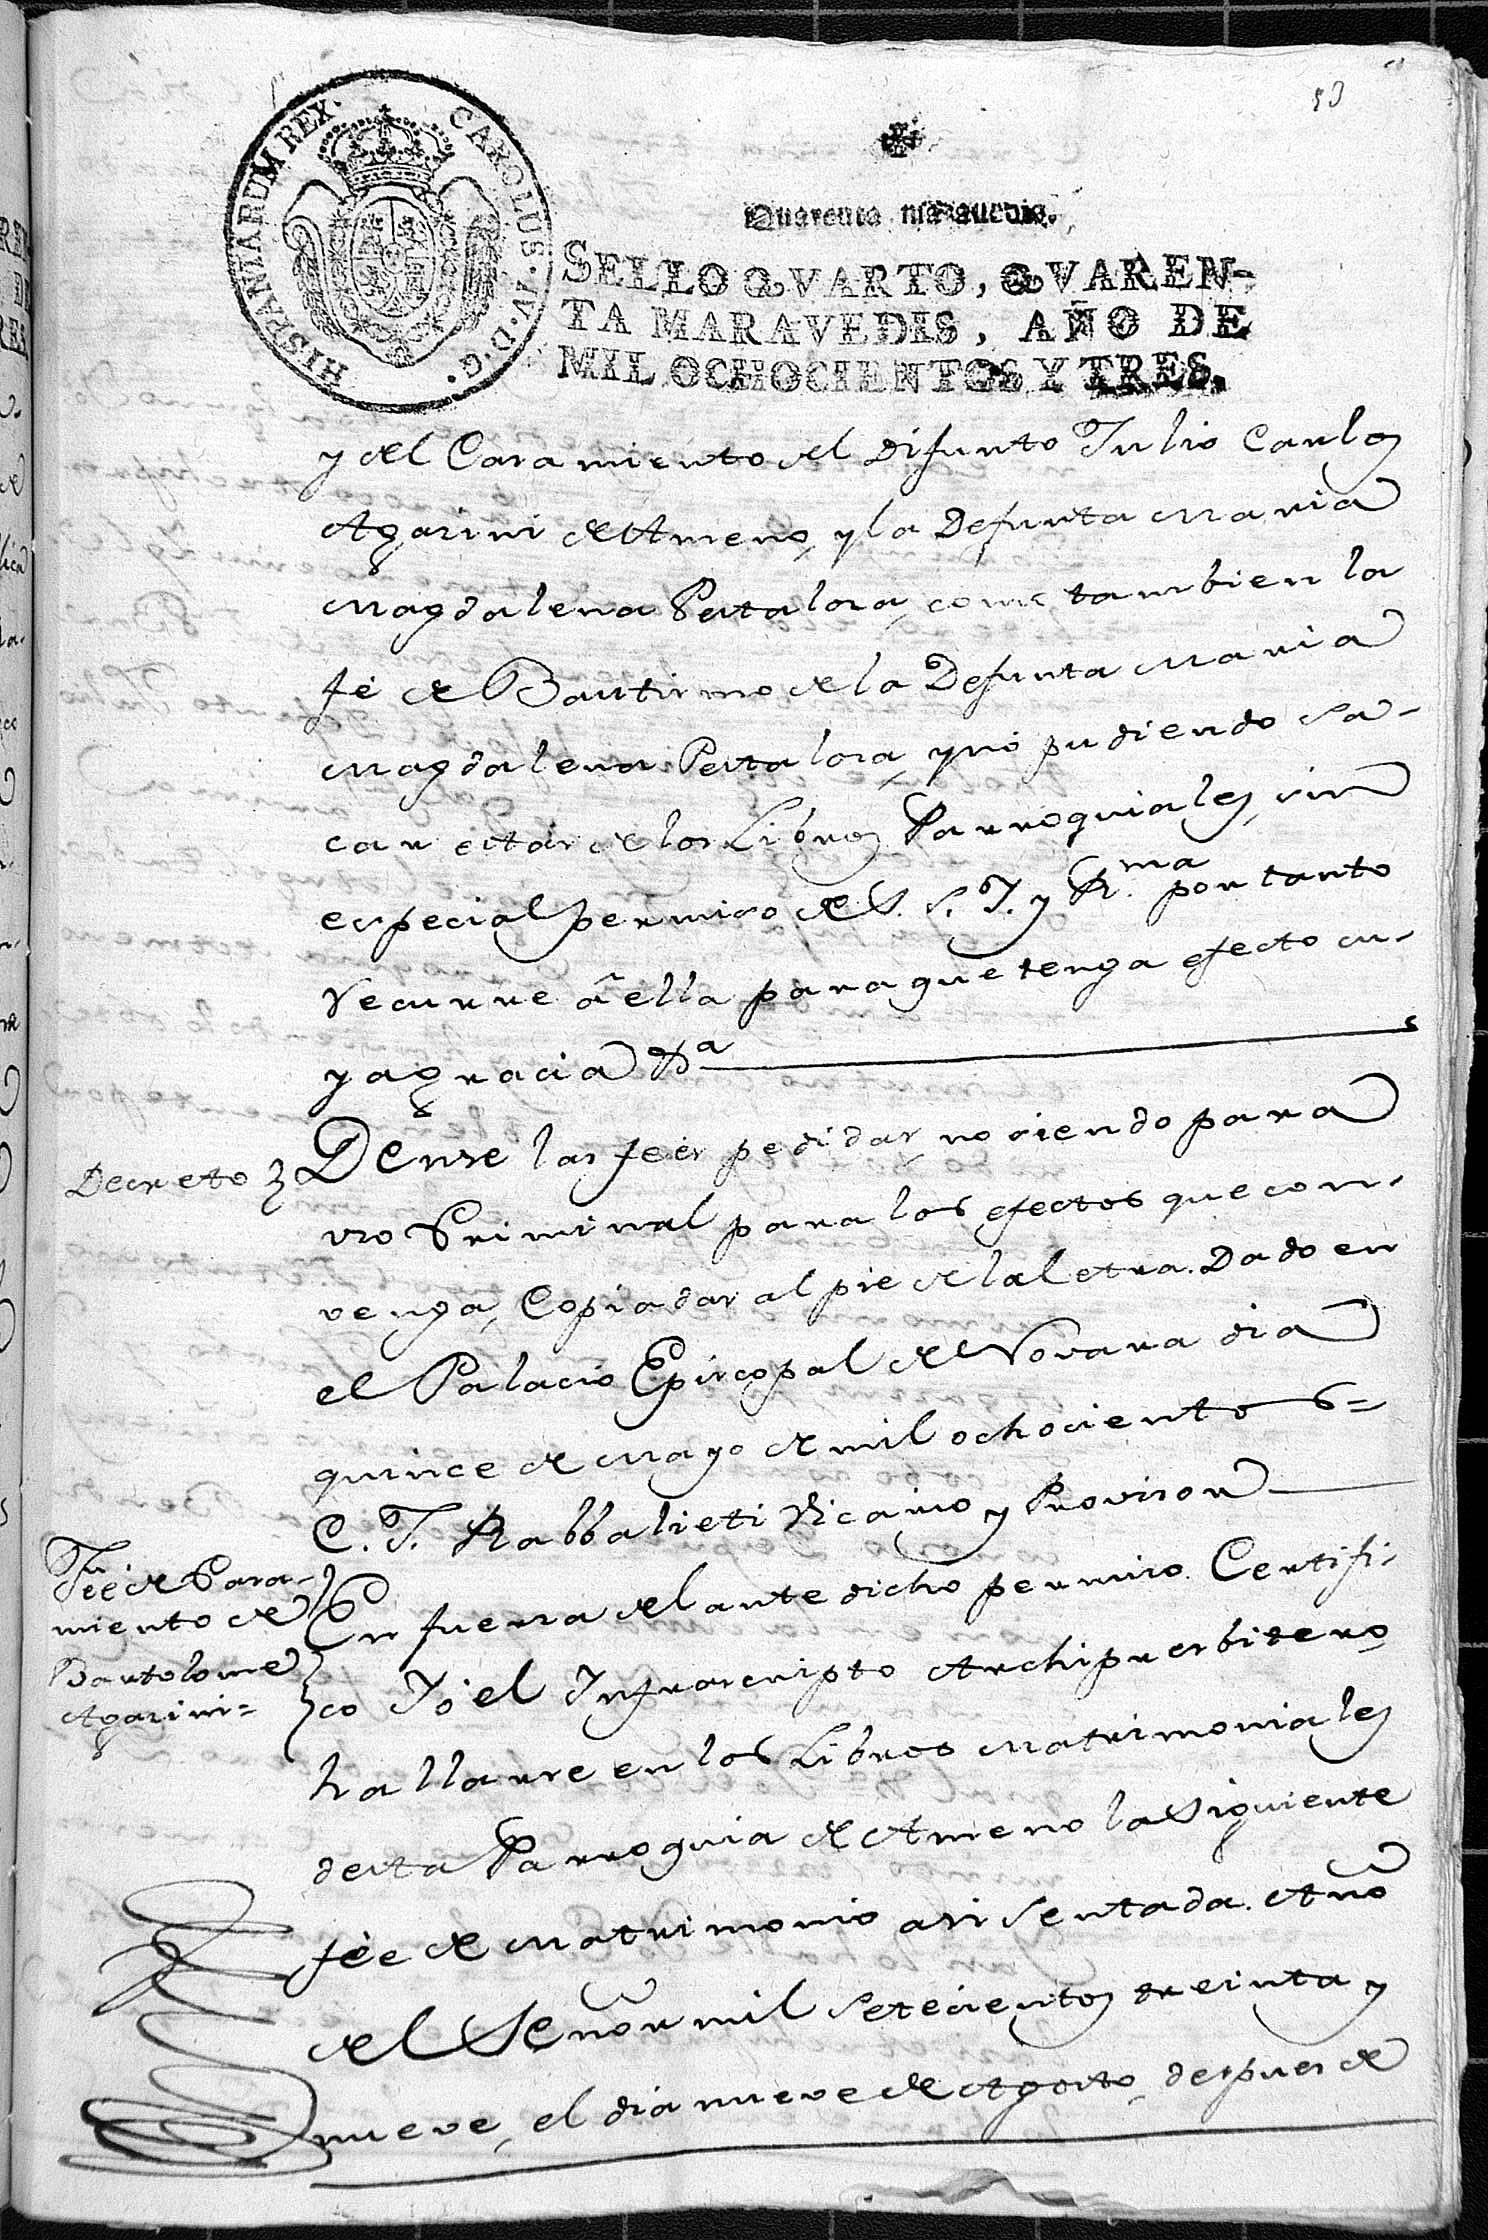 53
HISPANIARUM REX. CAROLUS. IV. D. G.
Quarenta marauedis.
SELLO QVARTO, QVAREN-
TA MARAVEDIS, AÑO DE
MIL OCHOCIENTOS Y TRES.
y del Casamiento del Difunto Julio Carlos
Agarini de Ameno, y la Defunta Maria
Magdalena Pestalora, como tambien la
fé de Bautismo de la Defunta Maria
Magdalena Pestalora, y no pudiendo sa-
car estas de los Libros Parroquiales, sin
especial permiso de V. S. I. y R.ma por tanto
recurre â ella para que tenga efecto cu-
ya gracia &a
Decreto
Dense las feés pedidas, no siendo para
uso Criminal para los efectos que con-
venga, Copiadas al pie de la letra. Dado en
el Palacio Episcopal de Novara dia
quince de Mayo de mil ochocientos =
C. T. Rabbalieti Vicario y Provisor
Feé de Casa-
miento de
Bartolome
Agarini =
En fuerza del antedicho permiso. Certifi-
co Yó el Infrascripto Archipresbitero,
hallarse en los Libros Matrimoniales
desta Parroquia de Ameno la siguiente
fée de Matrimonio asi sentada. Año
del Señor mil setecientos treinta y
nueve, el dia nueve de Agosto, despues de